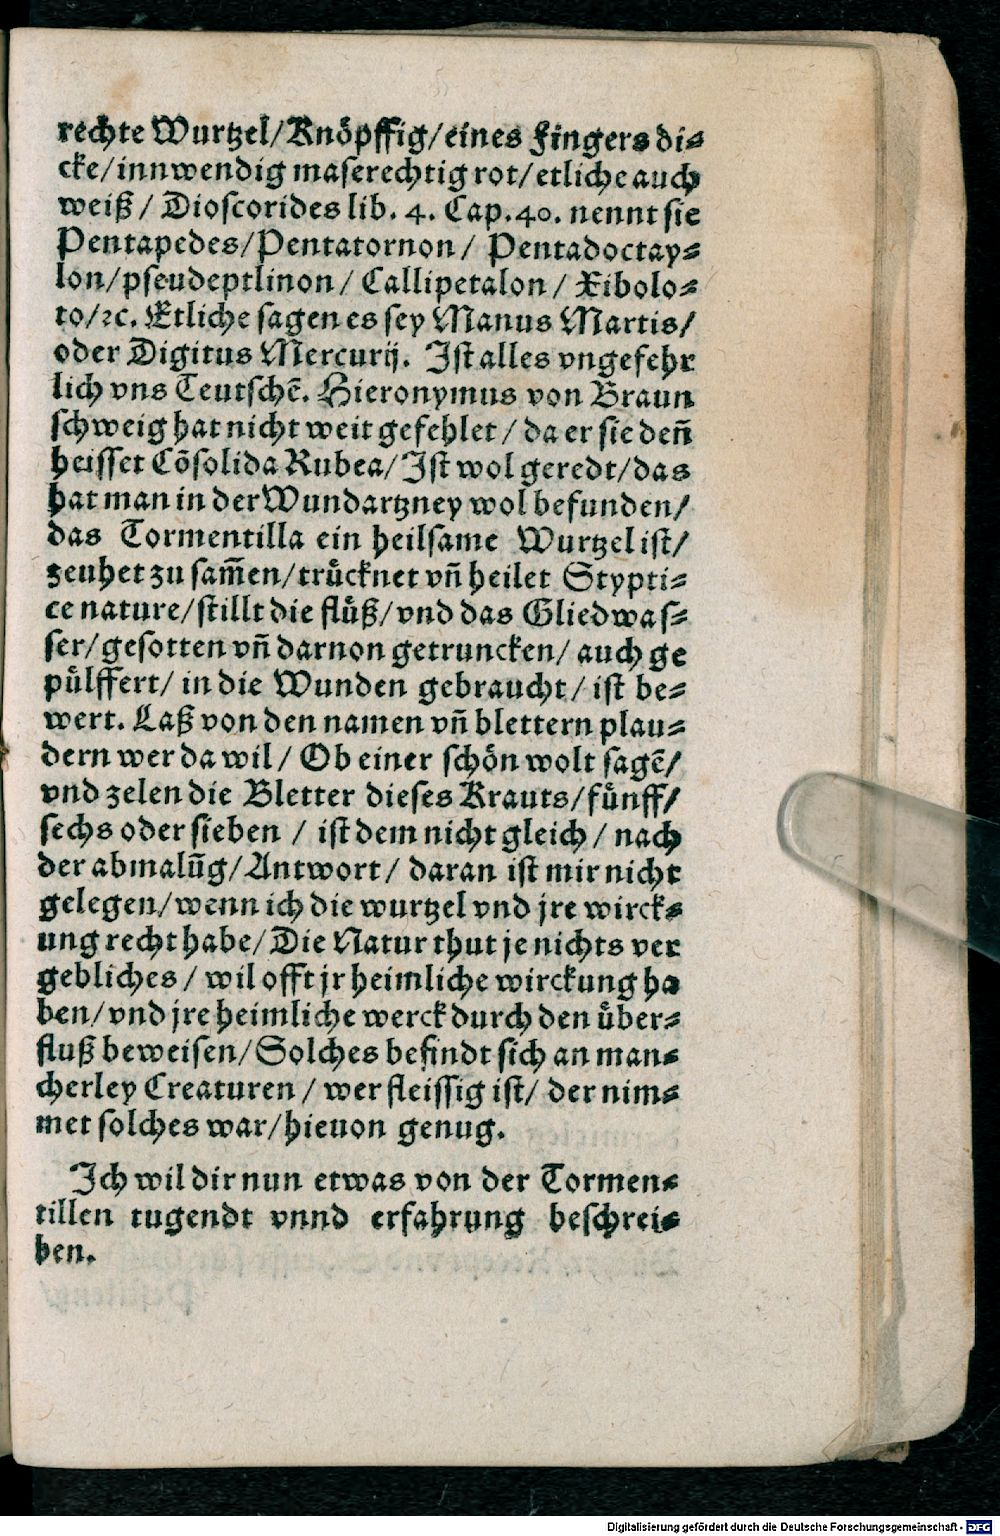 rechte Wurtzel/Knöpffig/eines Fingers di⸗
cke/innwendig maserechtig rot/etliche auch
weiß/ Dioscorides lib. 4. Cap.40. nennt sie
Pentapedes/Pentatornon/ Pentadoctay⸗
lon/pseudeptlinon/ Callipetalon/ Xibolo⸗
to/ꝛc. Etliche sagen es sey Manus Martis/
oder Digitus Mercurij. Ist alles vngefehr
lich vns Teutschẽ. Hieronymus von Braun
schweig hat nicht weit gefehlet/ da er sie deñ
heisset Cõsolida Rubea/Ist wol geredt/das
hat man in der Wundartzney wol befunden/
das Tormentilla ein heilsame Wurtzel ist/
zeuhet zu sam̃en/trücknet vñ heilet Stypti⸗
ce nature/stillt die flüß/vnd das Gliedwas⸗
ser/gesotten vñ darnon getruncken/ auch ge
pülffert/ in die Wunden gebraucht/ ist be⸗
wert. Laß von den namen vñ blettern plau⸗
dern wer da wil/ Ob einer schön wolt sagẽ/
vnd zelen die Bletter dieses Krauts/fünff/
sechs oder sieben/ ist dem nicht gleich/ nach
der abmalũg/Antwort/ daran ist mir nicht
gelegen/wenn ich die wurtzel vnd jre wirck⸗
ung recht habe/Die Natur thut je nichts ver
gebliches/ wil offt jr heimliche wirckung ha
ben/vnd jre heimliche werck durch den über⸗
fluß beweisen/Solches befindt sich an man⸗
cherley Creaturen/ wer fleissig ist/ der nim⸗
met solches war/hieuon genug.
Ich wil dir nun etwas von der Tormen⸗
tillen tugendt vnnd erfahrung beschrei⸗
ben.
Digitalisierung gefördert durch die Deutsche Forschungsgemeinschaft - DFG